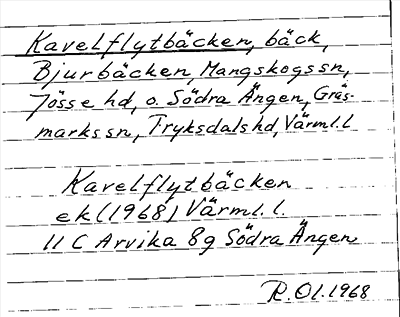 Kavelflytbäcken, bäck,
Bjurbäcken, Mangskogs sn,
Jösse hd, o. Södra Ängen, Gräs-
marks sn, Fryksdals hd, Värml. l.
Kavelflytbäcken
ek (1968) Värml. l.
11 C Arvika 8g Södra Ängen
R. Ol. 1968